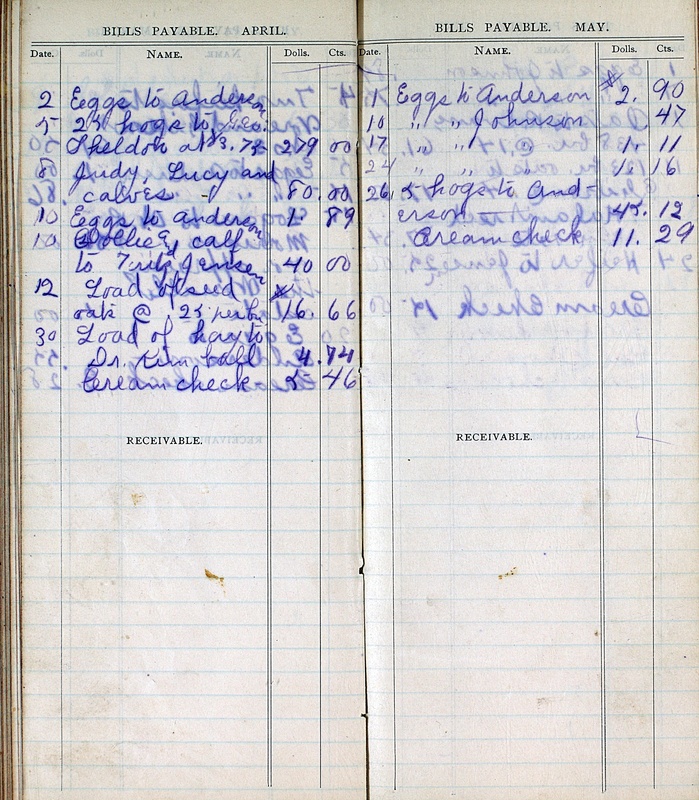 BILLS PAYABLE. APRIL.
Date. NAME. Dolls. Cts.
2 Eggs to Anderson
5 23 hogs to Geo.
Sheldon at 3.75 279 00
8 Judy, Lucy and
calves 80.00
10 Eggs to Anderson 1. 89
10 Dollie & calf
to Fritz Jensen 40 00
12 Load of seed
oak @ .25 per bu 16. 66
30 Load of hay to
Dr. Kimball 4.74
Cream check 5 46
RECEIVABLE.
BILLS PAYABLE. MAY.
Date. NAME. Dolls. Cts.
1 Eggs to Anderson $2. 90
10 " " Johnson 47
17 " " " 1. 11
24 " " " 1. 16
26 5 hogs to And-
erson 45. 12
Cream check 11. 29
RECEIVABLE.